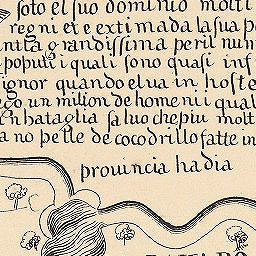 soto el suo dominio molti
regni et e extimada la sua p
ntia grandissima per il num
populi i quali sono quasi inf
ignor quando el va in hoste
eco un million de homeni i qual
en bataglia saluo che piu molt
a no pelle de cocodrillo fatte in
prouincia hadia